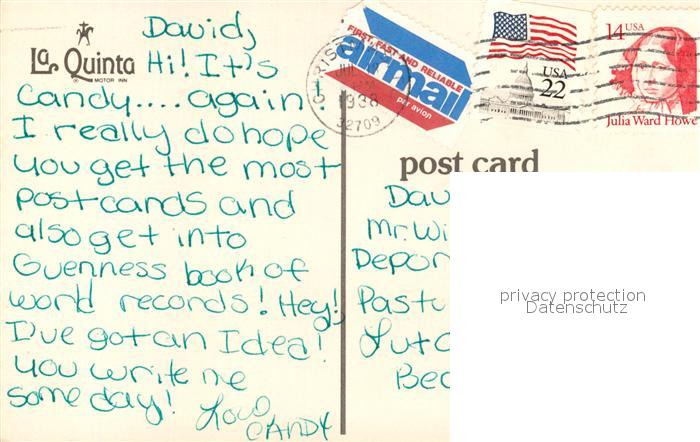 La Quinta
MOTOR INN
David,
Hi! It's
Candy.... again!
I really do hope
you get the most
postcards and
also get into
Guenness book of
world records! Hey!
I've got an Idea!
you write me
some day!
Love
CANDY
FIRST, FAST AND RELIABLE
airmail
par avion
JUL
32709
USA
22
14 USA
Julia Ward Howe
post card
Dav
Mr. Wi
Depor
Pastu
Luto
Bec
privacy protection
Datenschutz